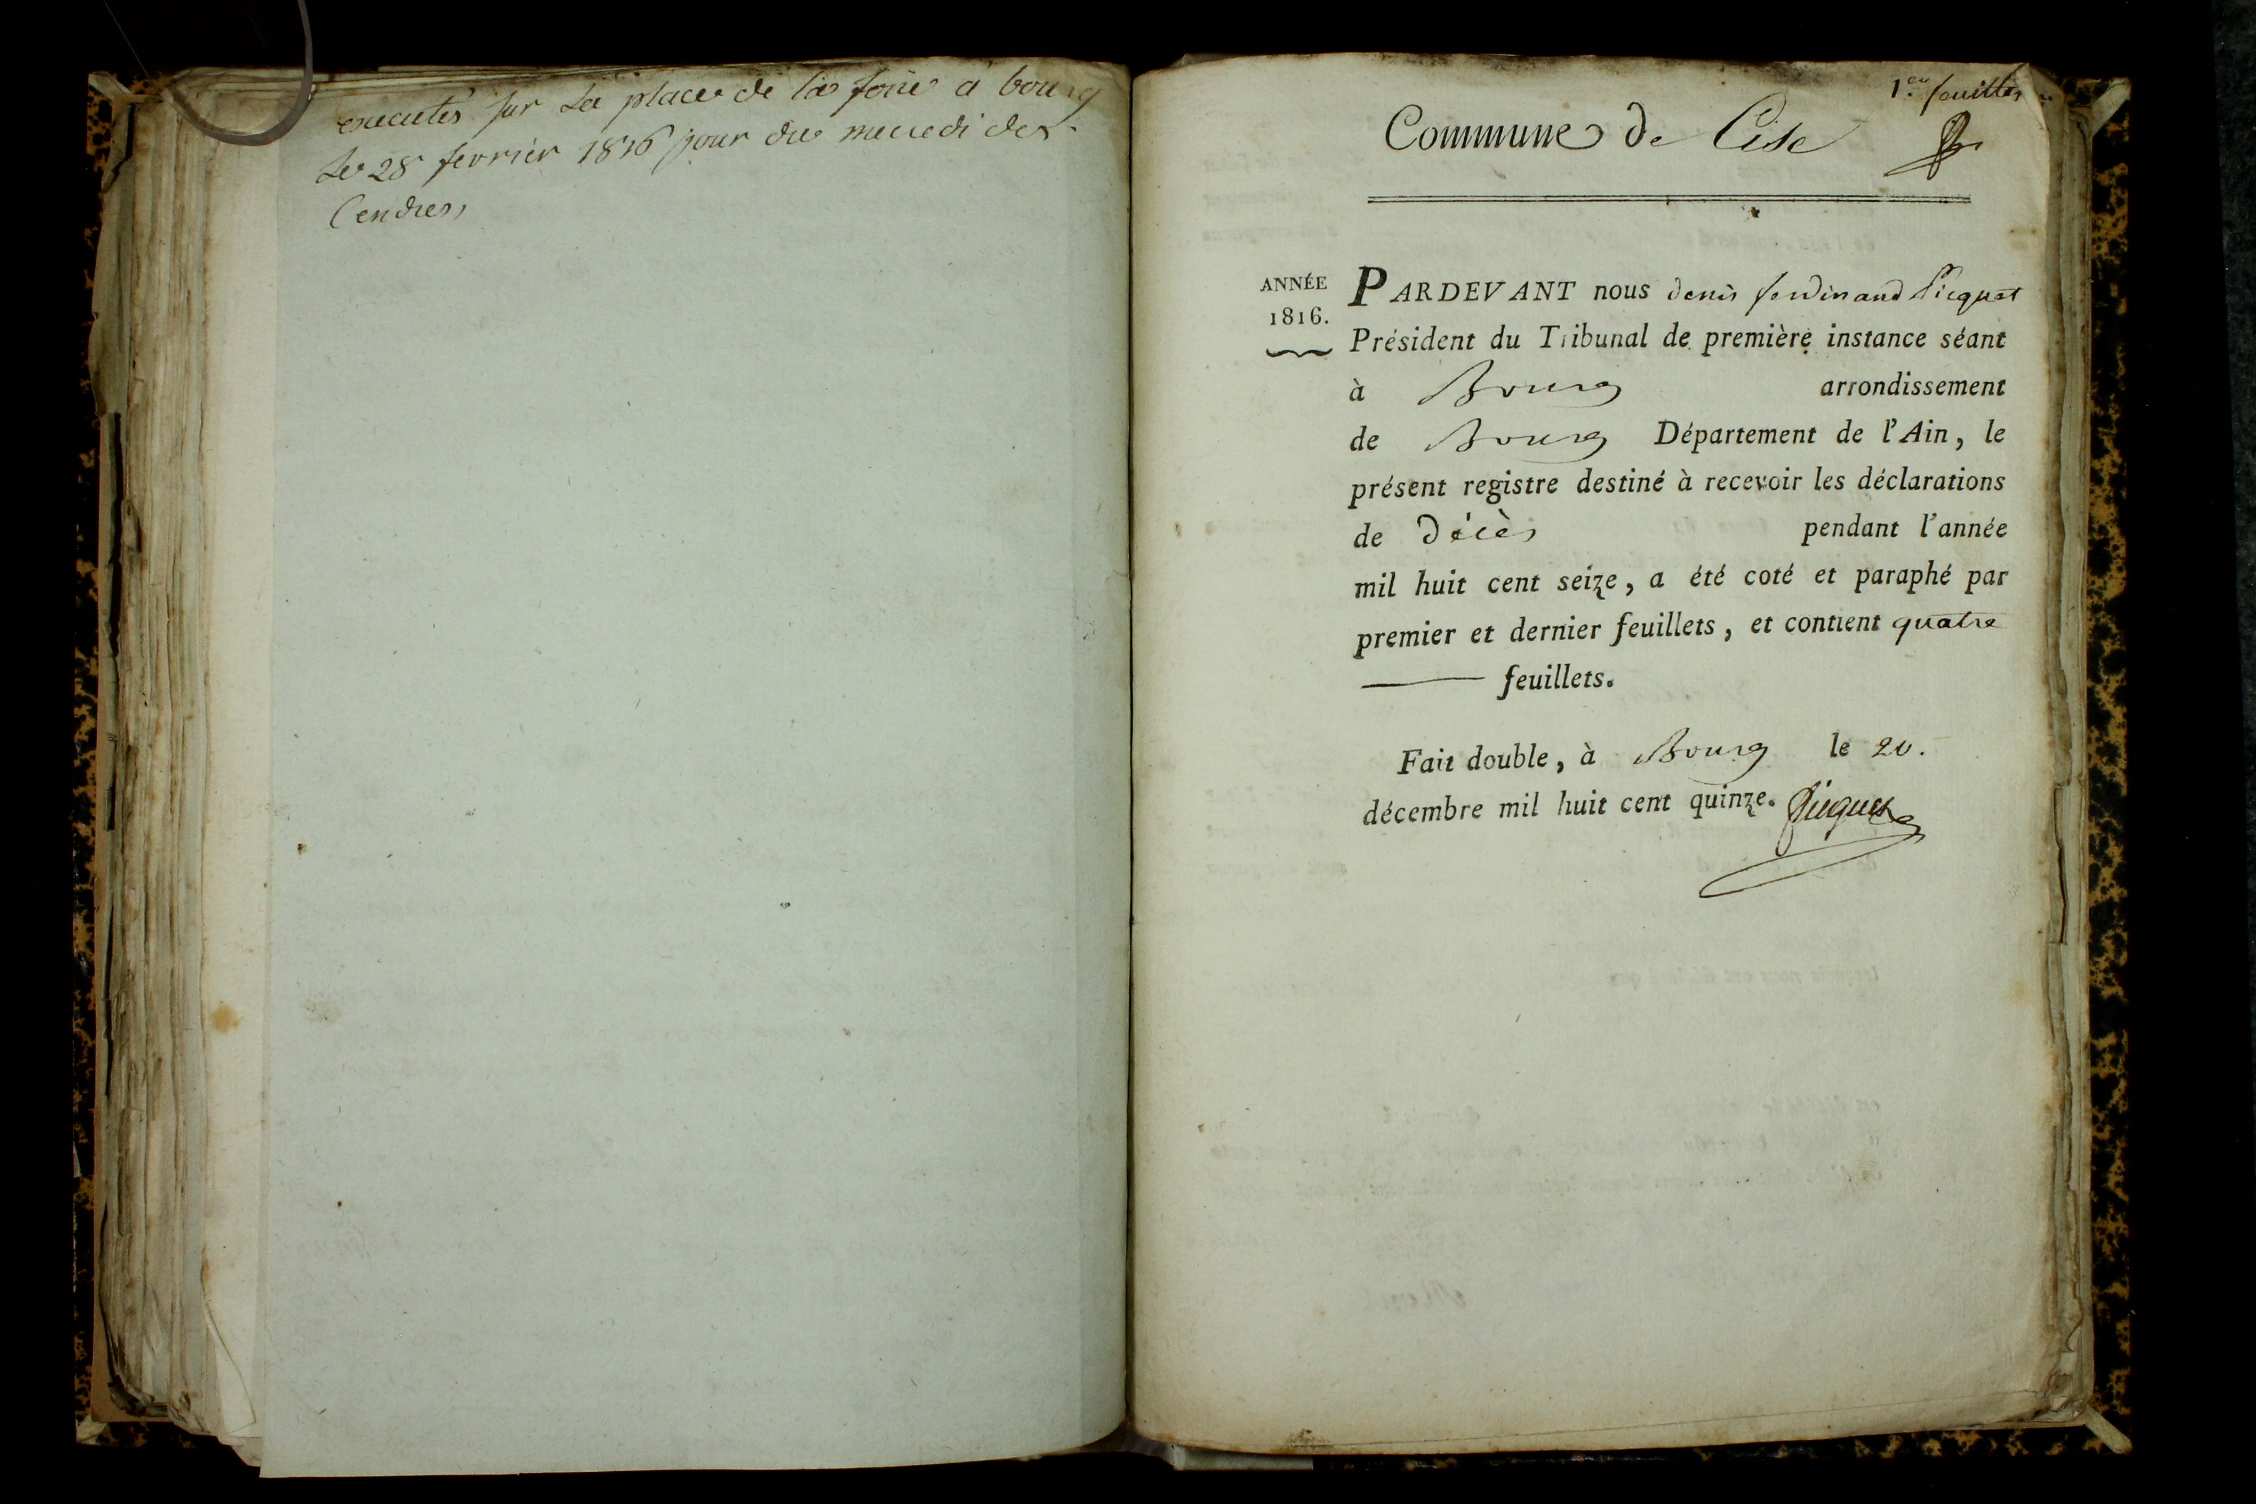 executés sur la place de la foire a bourg
Le 28 fevrier 1816 jour du mecredi des
Cendres
1.er feuillet
Commune de Cise
ANNÉE
1816.
PARDEVANT nous denis ferdinand Picquet
Président du Tribunal de première instance séant
à Bourg arrondissement
de Bourg Département de l'Ain, le
présent registre destiné à recevoir les déclarations
de décès pendant l'année
mil huit cent seize, a été coté et paraphé par
premier et dernier feuillets, et contient quatre
feuillets.
Fait double, à Bourg le 20.
décembre mil huit cent quinze. Picquet